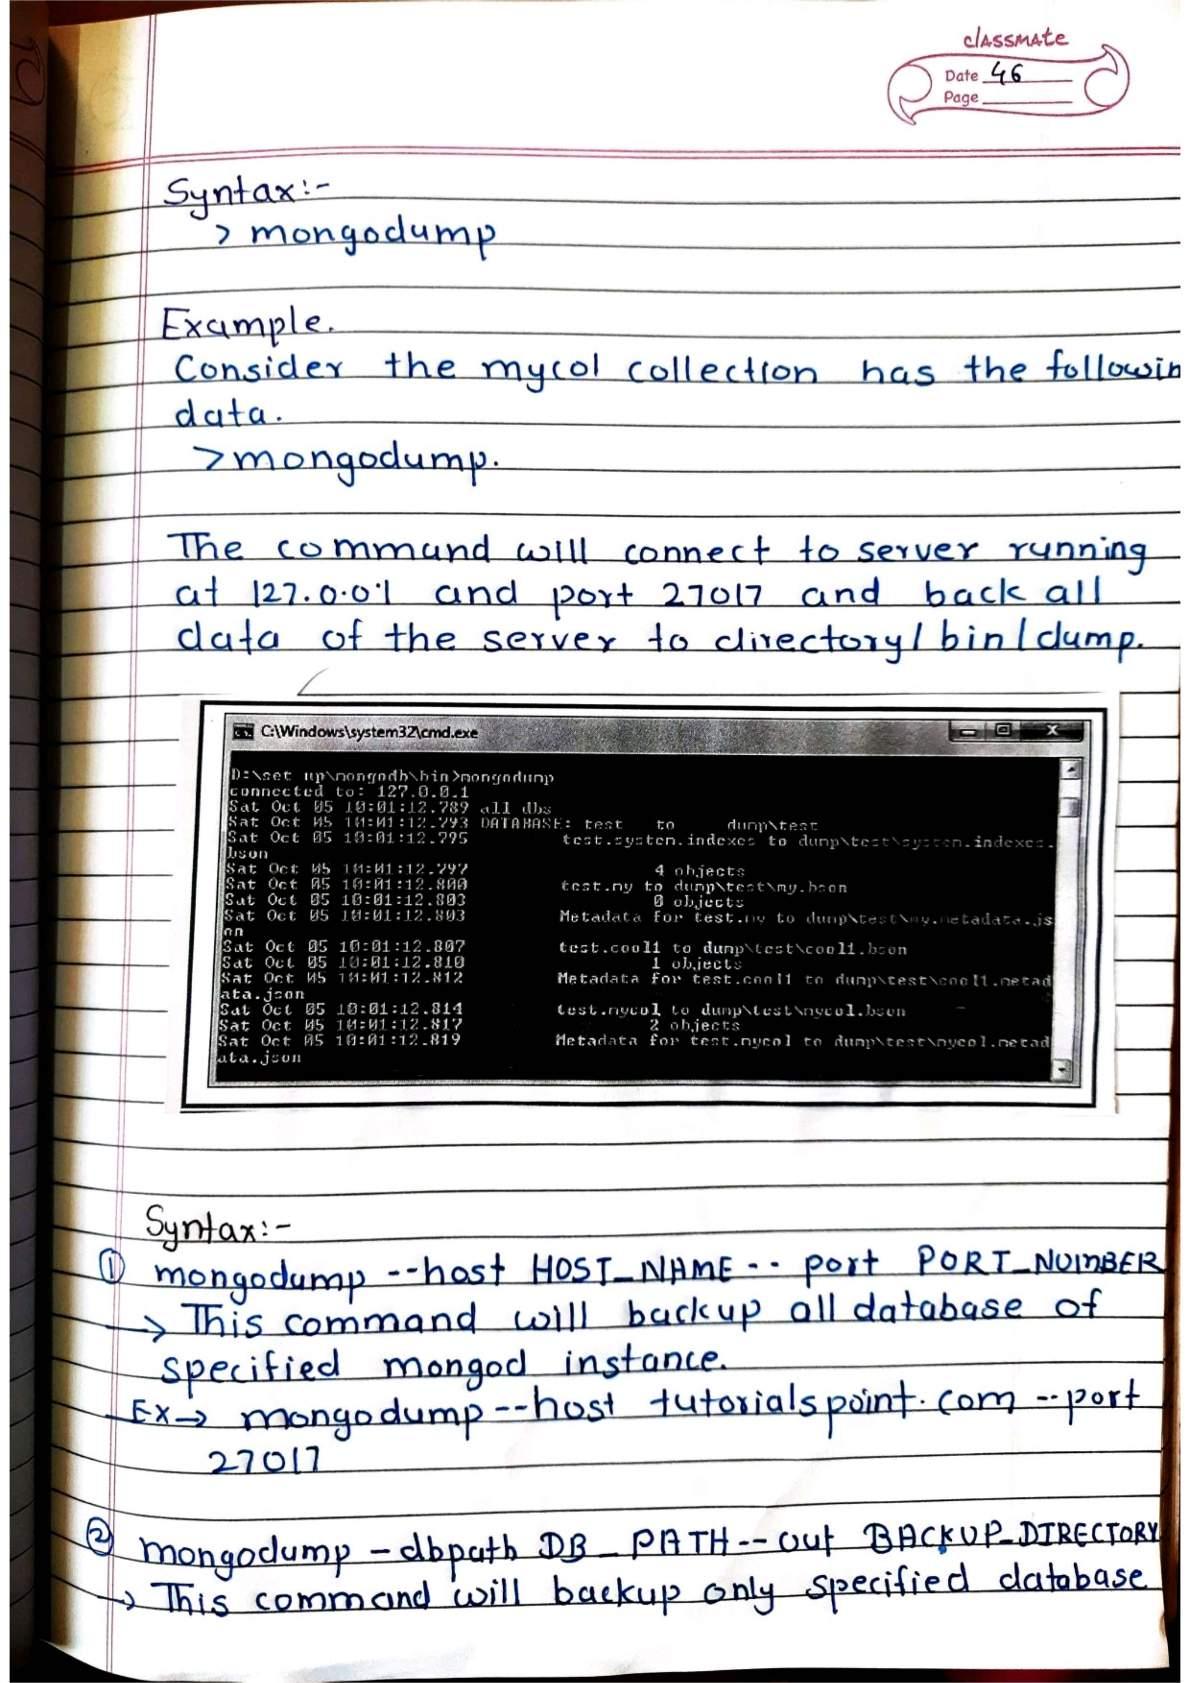 classmate
Date 46
Page
Syntax:-
> mongodump
Example.
Consider the mycol collection has the followin
data.
>mongodump.
The command will connect to server running
at 127.0.0.1 and port 27017 and back all
data of the server to directory/bin/dump.
C:\Windows\system32\cmd.exe
D:\set up\mongodb\bin>mongodump
connected to: 127.0.0.1
Sat Oct 05 10:01:12.789 all dbs
Sat Oct 05 10:01:12.793 DATABASE: test to dump\test
Sat Oct 05 10:01:12.795 test.system.indexes to dump\test\system.indexes.
bson
Sat Oct 05 10:01:12.797 4 objects
Sat Oct 05 10:01:12.800 test.my to dump\test\my.bson
Sat Oct 05 10:01:12.803 0 objects
Sat Oct 05 10:01:12.803 Metadata for test.my to dump\test\my.metadata.js
on
Sat Oct 05 10:01:12.807 test.cool1 to dump\test\cool1.bson
Sat Oct 05 10:01:12.810 1 objects
Sat Oct 05 10:01:12.812 Metadata for test.cool1 to dump\test\cool1.metad
ata.json
Sat Oct 05 10:01:12.814 test.mycol to dump\test\mycol.bson
Sat Oct 05 10:01:12.817 2 objects
Sat Oct 05 10:01:12.819 Metadata for test.mycol to dump\test\mycol.metad
ata.json
Syntax:-
① mongodump --host HOST_NAME -- port PORT_NUMBER
→ This command will backup all database of
specified mongod instance.
Ex→ mongodump --host tutorialspoint.com --port
27017
② mongodump -dbpath DB_PATH --out BACKUP_DIRECTORY
→ This command will backup only specified database